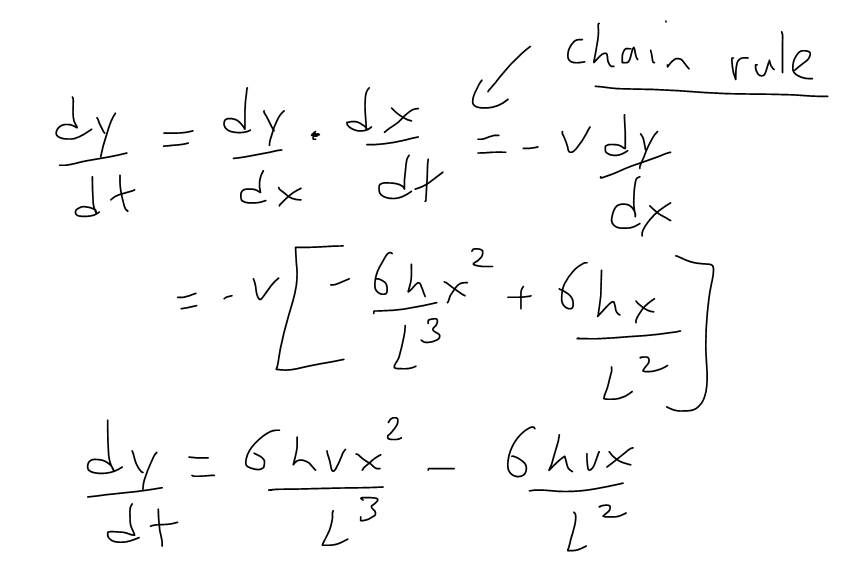 chain rule
dy/dt = dy/dx · dx/dt = - v dy/dx
= - v [ - 6hx²/L³ + 6hx/L² ]
dy/dt = 6hvx²/L³ - 6hvx/L²